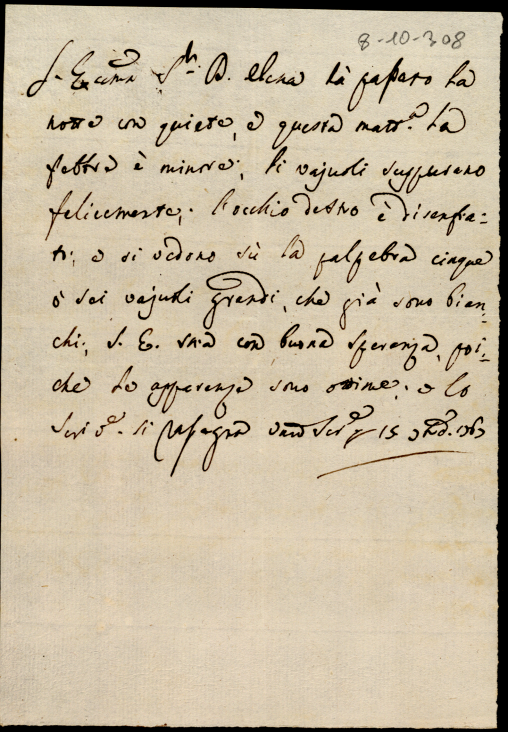 8-10-308
S. Eccma Sra D. Elena hà passato la
notte con quiete, e questa mattna la
febbre è minore; li vajuoli suppurano
felicemente; l'occhio destro è disenfia-
to; e si vedono sù la palpebra cinque
ò sei vajuoli grandi, che già sono bian-
chi; S. E. stia con buona speranza, poi-
che le apparenze sono ottime; e lo
si rasegna 15